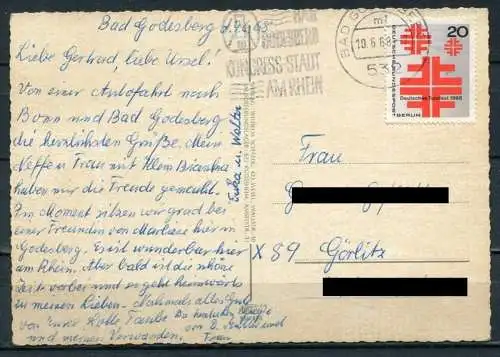 Bad Godesberg d. 9.6.68
Liebe Gertrud, liebe Ursel!
Von einer Autofahrt nach
Bonn und Bad Godesberg
die herzlichsten Grüße. Mein
Neffe u. Frau mit klein Bianka
haben mir die Freude gemacht.
Im Moment sitzen wir grad bei
einer Freundin von Marliese hier in
Godesberg. Es ist wunderbar hier
am Rhein. Aber bald ist die schöne
Zeit vorbei und es geht heimwärts
zu meinen Lieben. Nochmals alles Gute
von Eurer Tante
und meinen Verwandten.
Frau
Erika u. Walter
BAD
GODESBERG
KONGRESS-STADT
AM RHEIN
BAD GODESBERG
mf
10.6.68
532
20
DEUTSCHE BUNDESPOST
BERLIN
Deutsches Turnfest 1968
Frau
X 89 Görlitz